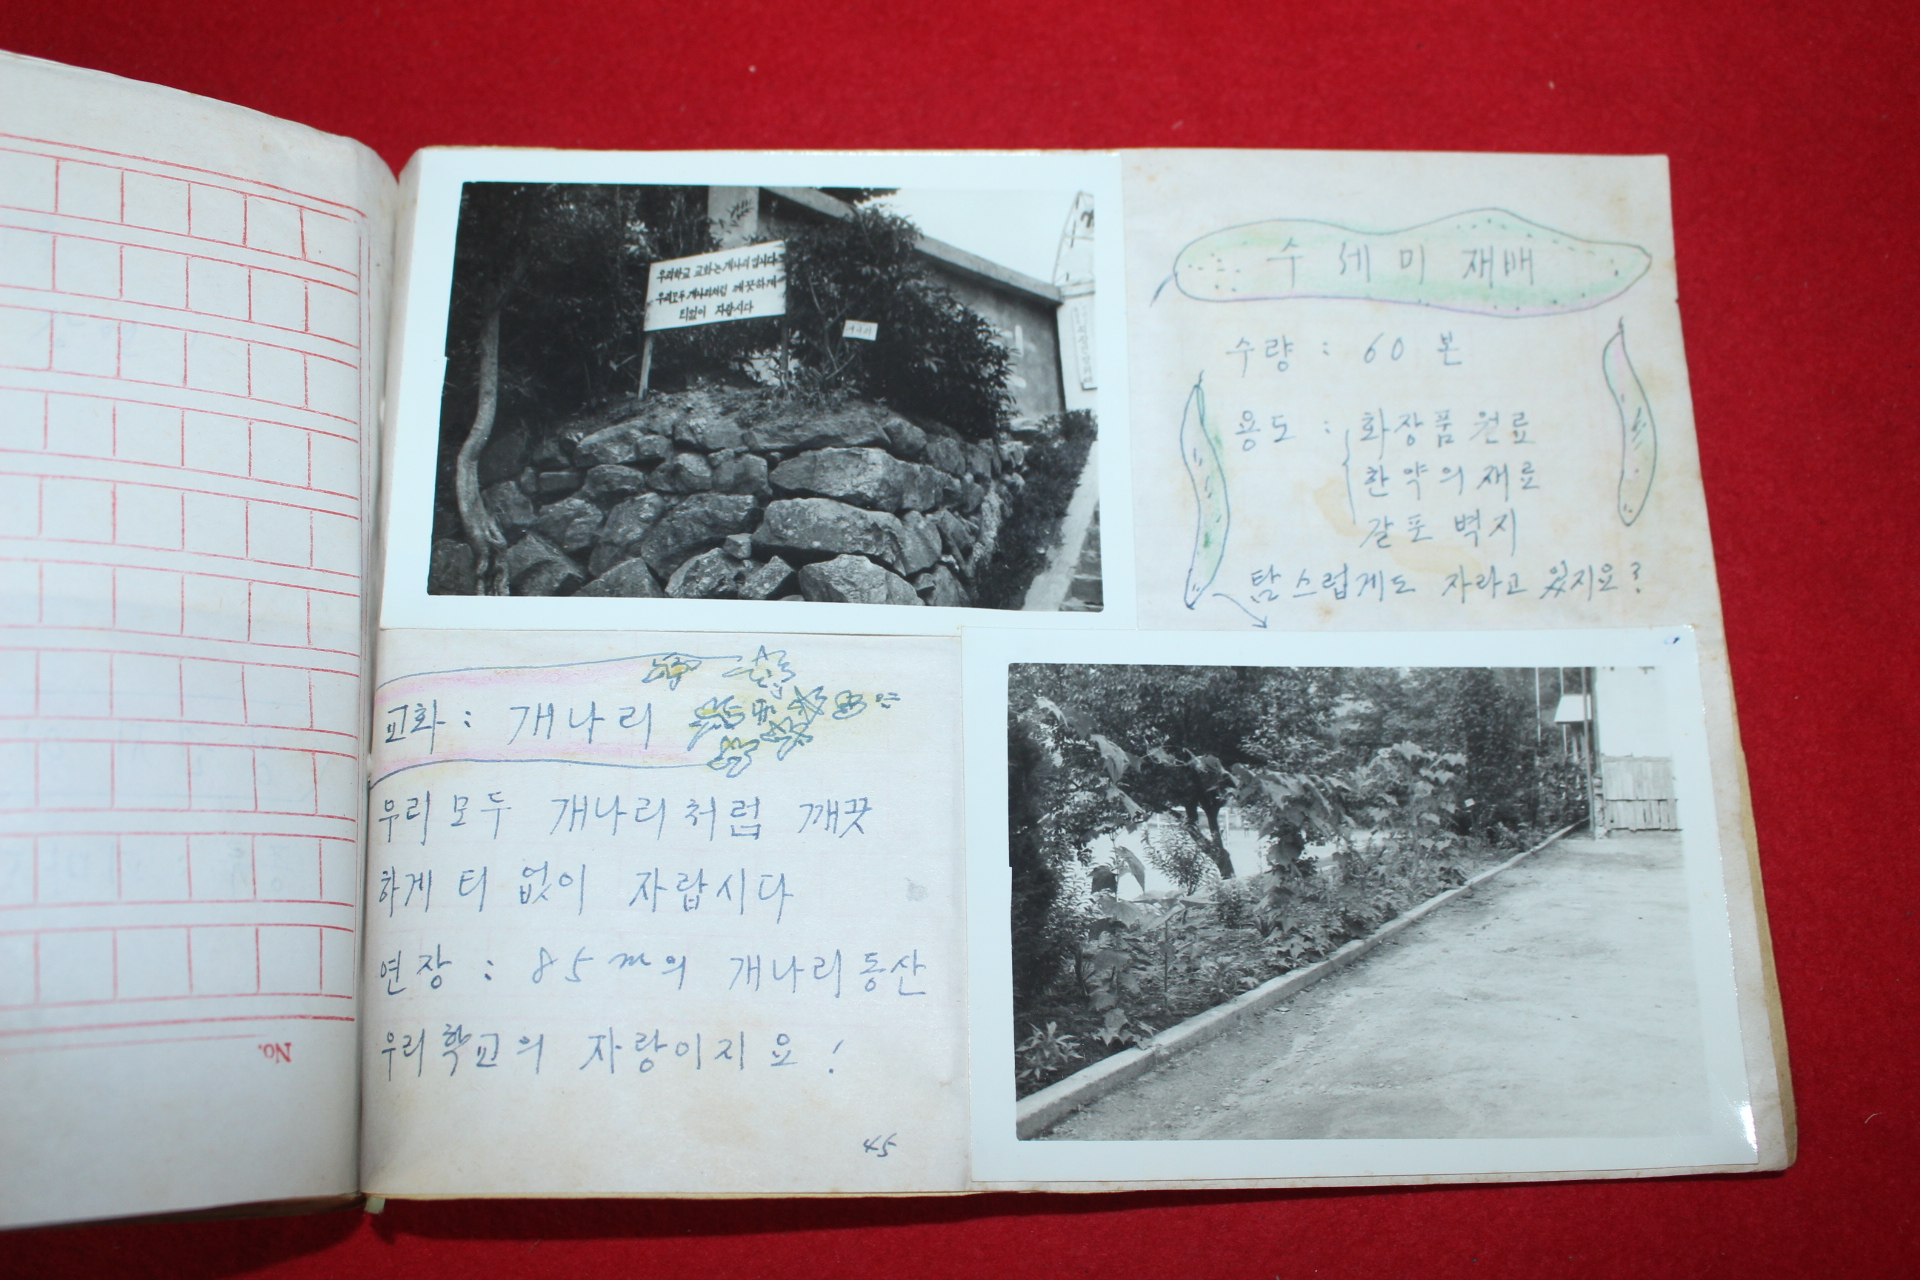 우리학교 교화는 개나리입니다
우리모두 개나리처럼 깨끗하게
티없이 자랍시다
개나리
수세미 재배
수량 : 60 본
용도 : 화장품 원료
한약의 재료
갈포 벽지
탐스럽게도 자라고 있지요?
교화 : 개나리
우리모두 개나리처럼 깨끗
하게 티 없이 자랍시다
연장 : 85m의 개나리동산
우리학교의 자랑이지요!
45
No.